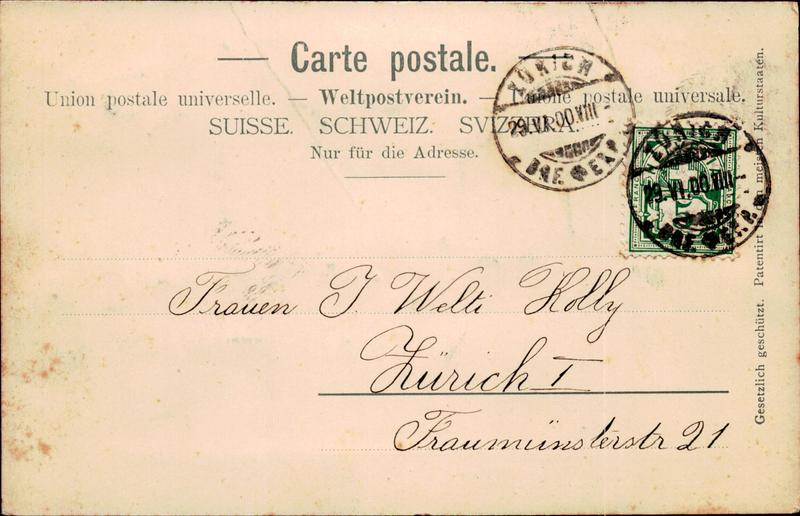 Carte postale.
Union postale universelle. — Weltpostverein. — Unione postale universale.
SUISSE. SCHWEIZ. SVIZZERA.
Nur für die Adresse.
ZÜRICH
29.VI.00.VIII
BRF. EXP.
ZÜRICH
29.VI.00.VIII
BRF. EXP.
Frauen J. Welti Holly
Zürich I
Fraumünsterstr 21
Gesetzlich geschützt. Patentirt in den meisten Kulturstaaten.